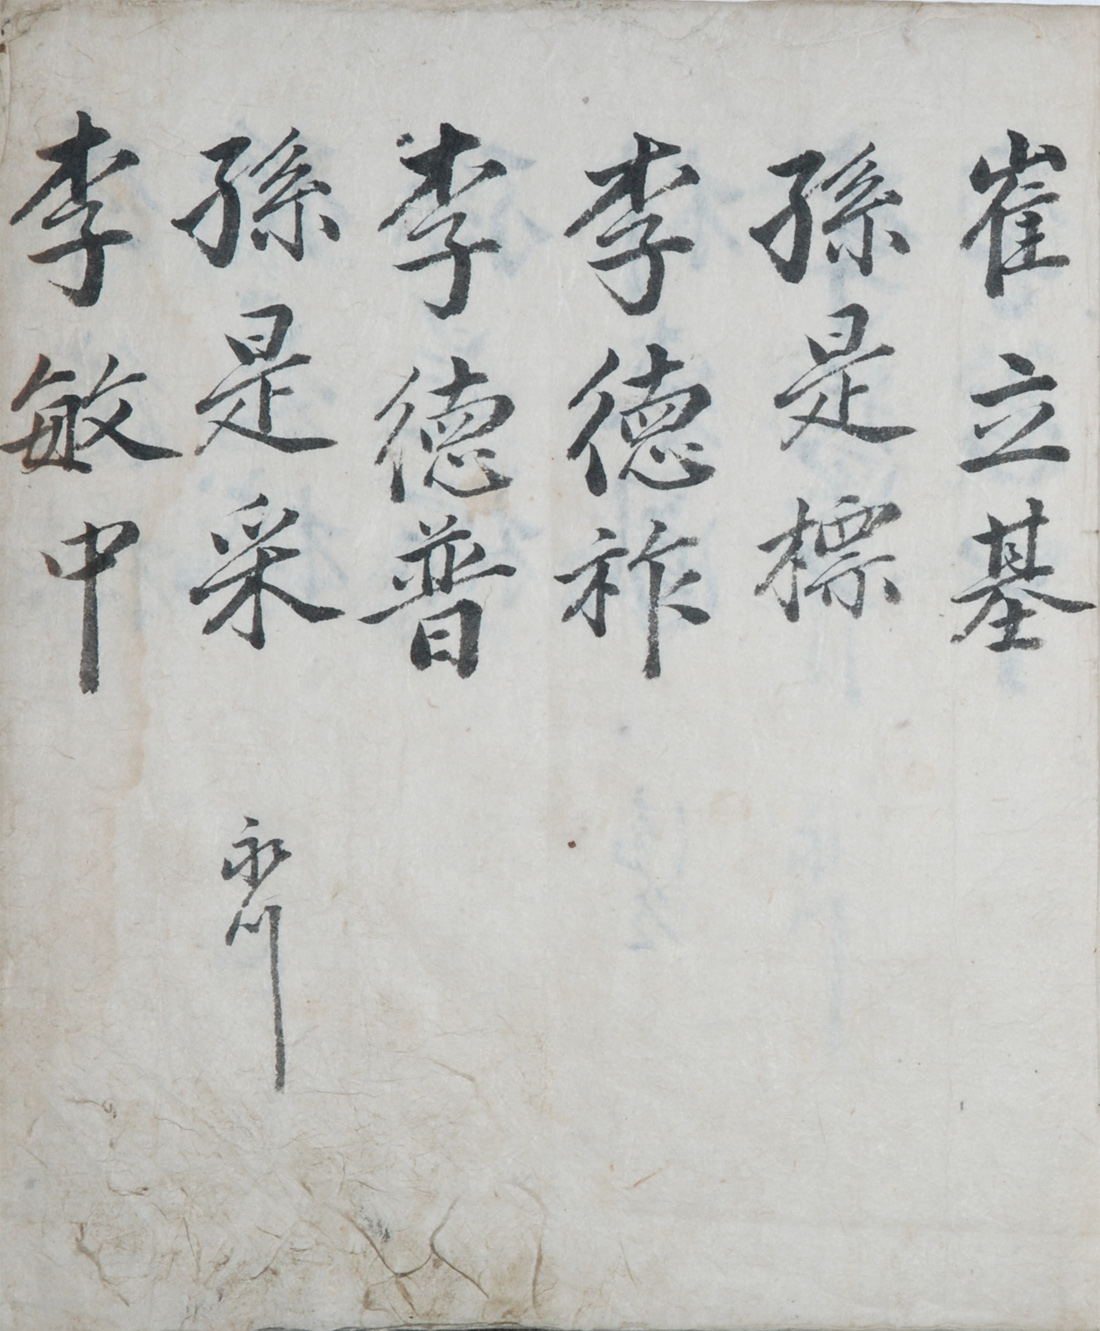 崔立基
孫是標
李德祚
李德普
孫是采 永川
李敏中